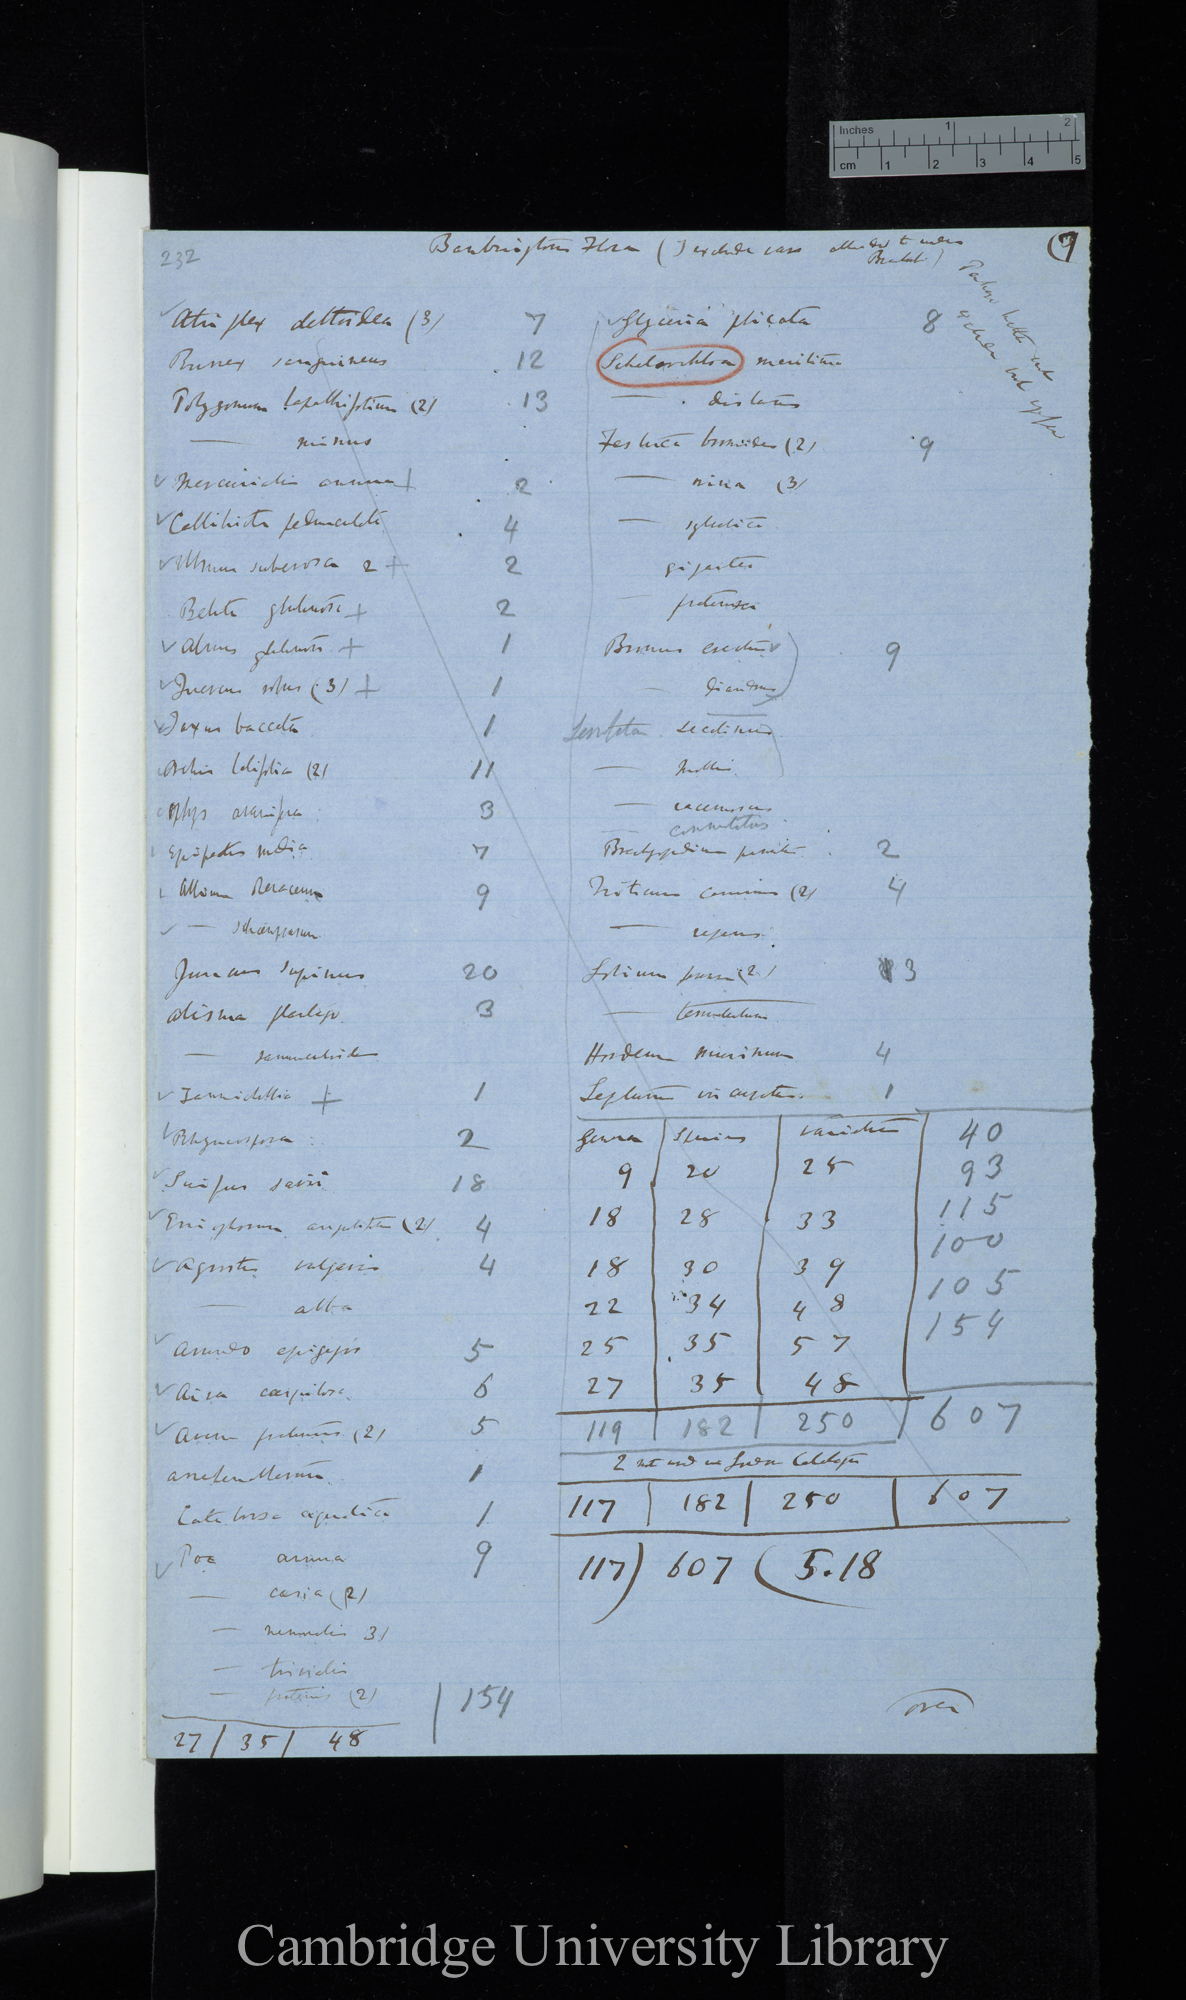 Inches 1 2
cm 1 2 3 4 5
232
Babington Flora (I exclude cases
7
Atriplex deltoidea (3) 7
Rumex sanguineus 12
Polygonum lapathifolium (2) 13
— minus
Mercurialis annua + 2
Callitriche pedunculata 4
Ulmus suberosa 2 + 2
Betula glutinosa + 2
Alnus glutinosa + 1
Quercus robur (3) + 1
Taxus baccata 1
Orchis latifolia (2) 11
Ophrys aranifera 3
Epipactis media 7
Allium 9
— schoenoprasum
Juncus supinus 20
Alisma plantago 3
— ranunculoides
Zannichellia + 1
Rhyncospora 2
Scirpus savii 18
Eriophorum angustifolium (2) 4
Agrostis vulgaris 4
— alba
Arundo epigejos 5
Aira caespitosa 6
Avena pratensis (2) 5
Arrhenatherum 1
Catabrosa aquatica 1
Poa annua 9
— caesia (2)
— nemoralis 3)
— trivialis
— pratensis (2)
154
27 | 35 | 48
Glyceria plicata 8
Schlerochloa maritima
— distans
Festuca bromoides (2) 9
— ovina (3)
— sylvatica
gigantea
— pratensis
Bromus erectus 9
— diandrus
secalinus
— mollis
— racemosus
— commutatus
Brachypodium pinnatum 2
Triticum caninum (2) 4
— repens
Lolium perenne (2) 3
— temulentum
Hordeum murinum 4
Lepturus incurvatus 1
Genera | Species | Varieties | 40
9 | 20 | 25 | 93
18 | 28 | 33 | 115
100
18 | 30 | 39 | 105
22 | 34 | 48 | 154
25 | 35 | 57
27 | 35 | 48
119 | 182 | 250 | 607
2 not in London Catalogue
117 | 182 | 250 | 607
117) 607 (5.18
over
Cambridge University Library